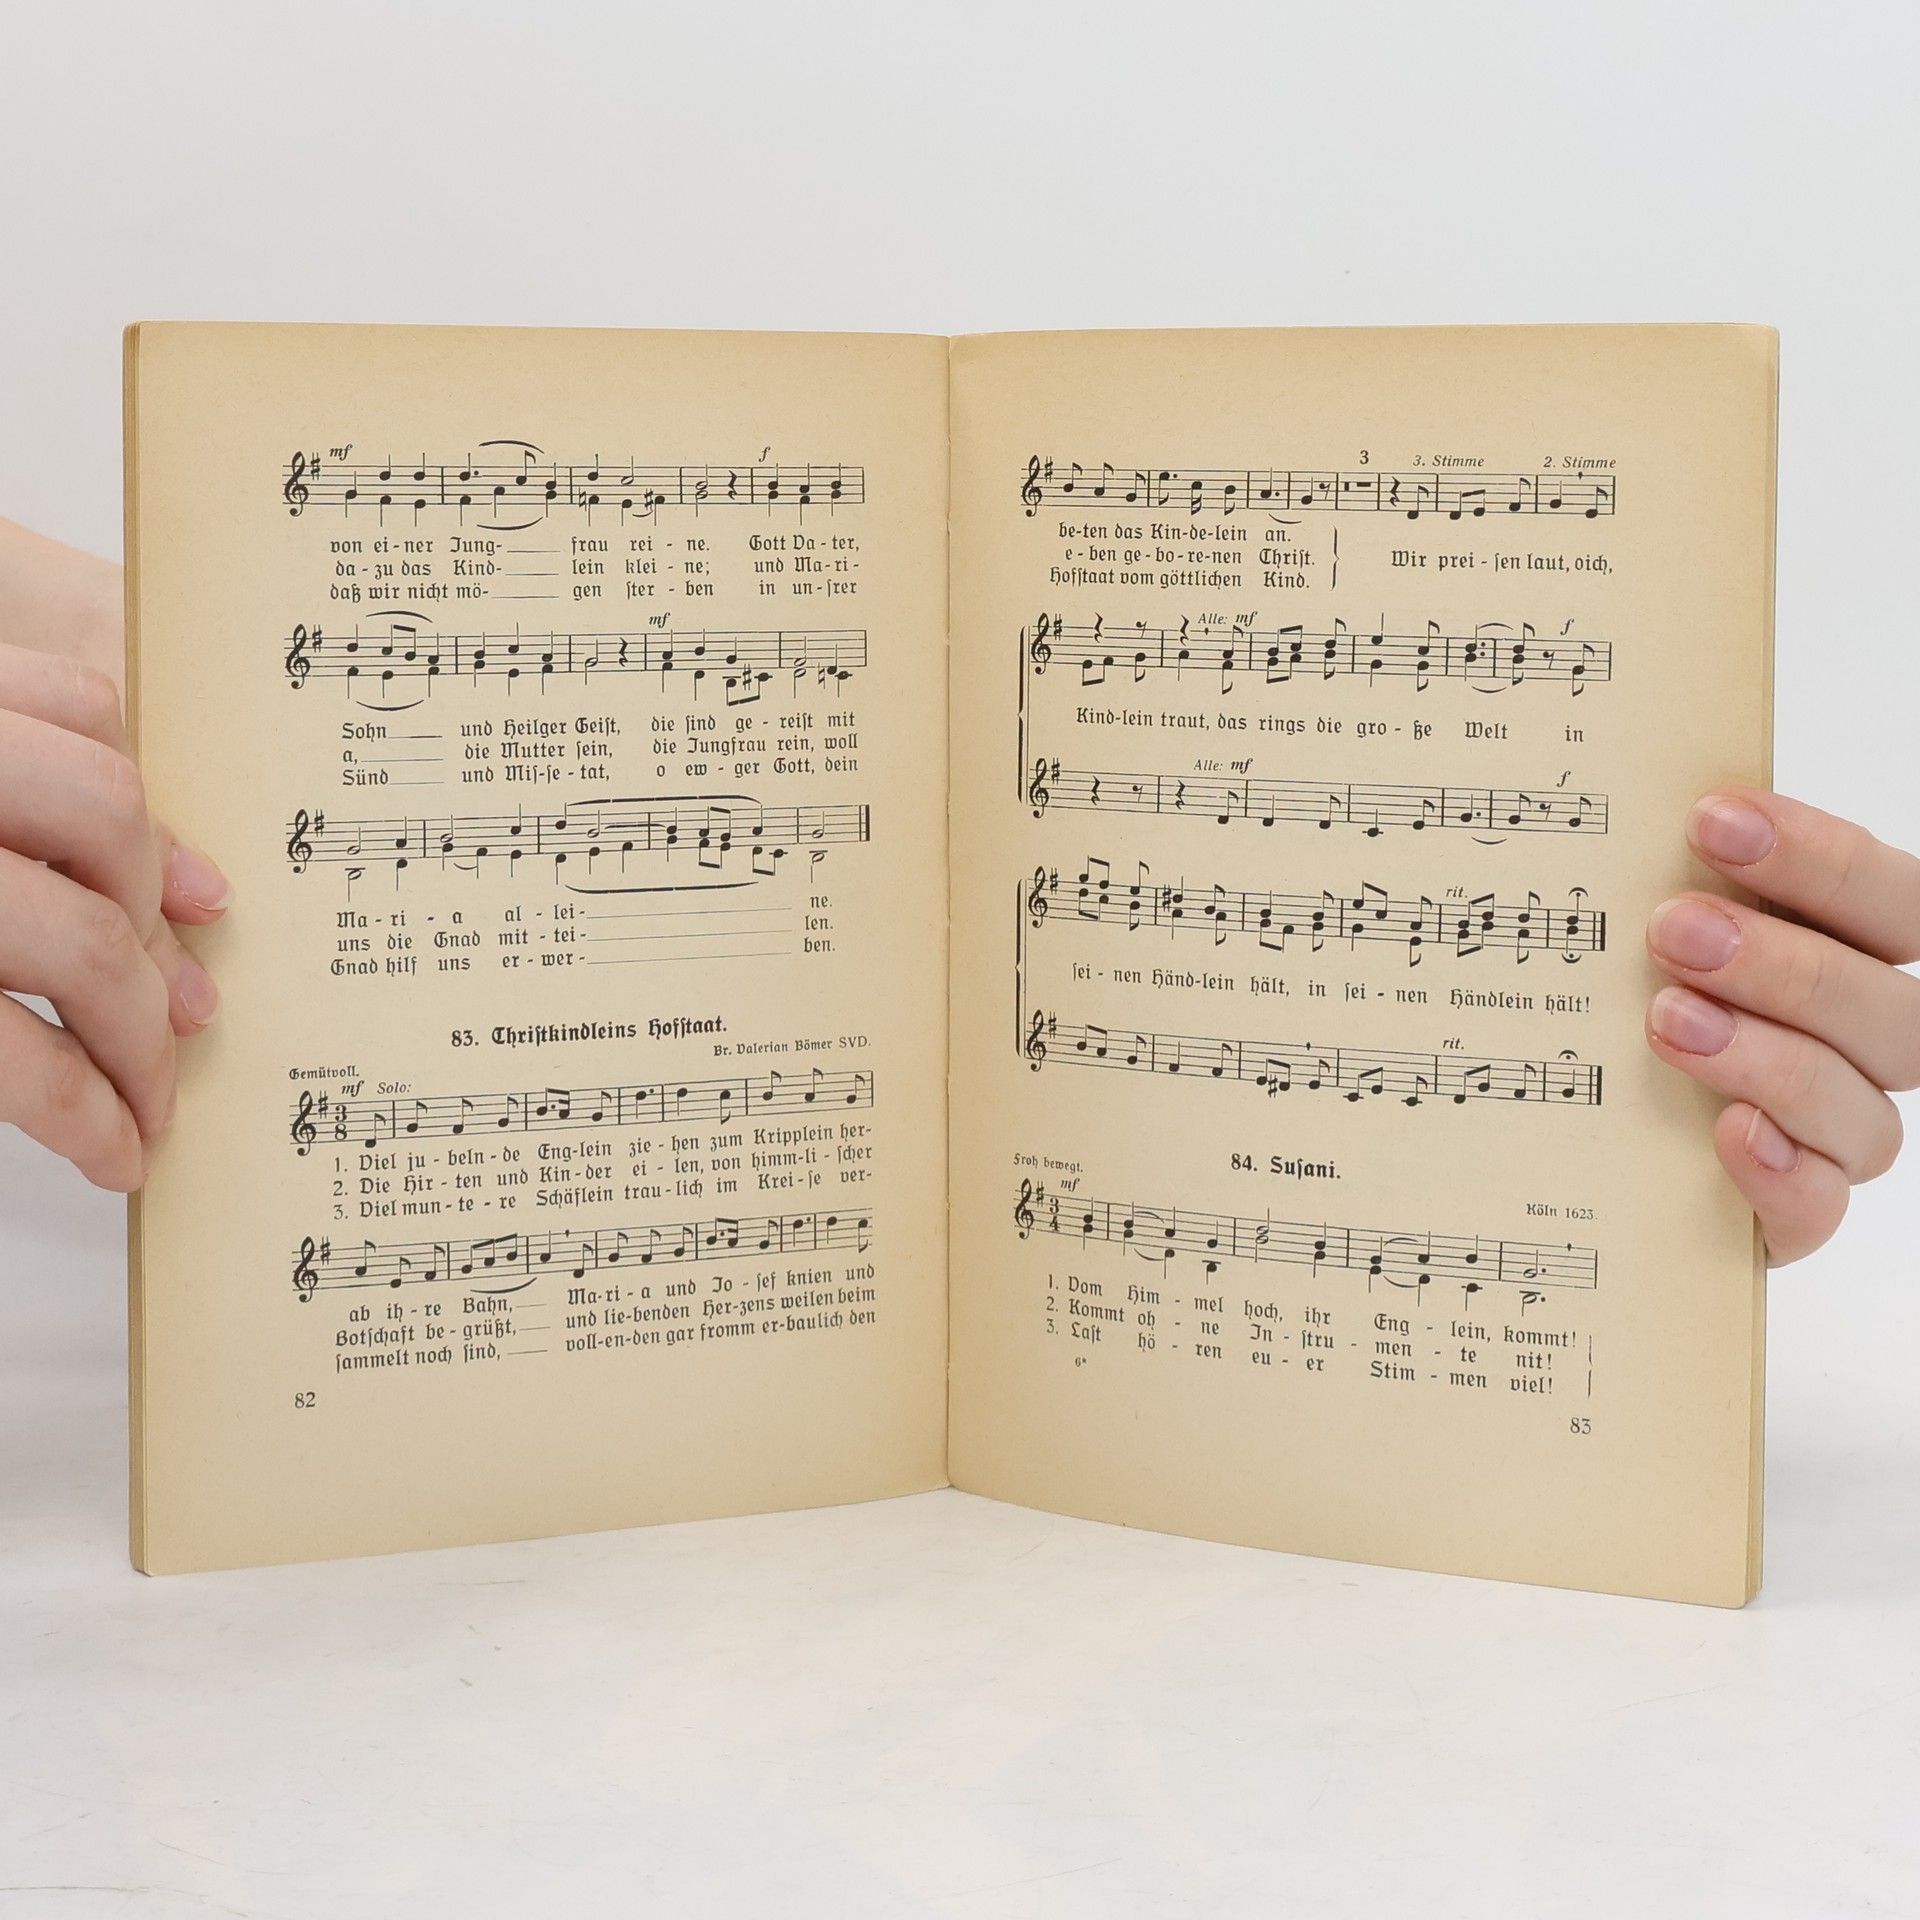 mf
f
von ei-ner Jung-____ frau rei - ne. Gott Va-ter,
da-zu das Kind-____ lein klei - ne; und Ma-ri-
daß wir nicht mö-____ gen ster - ben in un-srer
mf
Sohn____ und Heilger Geist, die sind ge - reist mit
a,____ die Mutter sein, die Jungfrau rein, woll
Sünd____ und Mis-se-tat, o ew - ger Gott, dein
Ma - ri - a al - lei-____ ne.
uns die Gnad mit - tei-____ len.
Gnad hilf uns er - wer-____ ben.
83. Christkindleins Hofstaat.
Br. Valerian Bömer SVD.
Gemütvoll.
mf Solo:
3
8
1. Viel ju - beln - de Eng-lein zie - hen zum Kripplein her-
2. Die Hir - ten und Kin-der ei - len, von himm-li - scher
3. Viel mun - te - re Schäflein trau-lich im Krei - se ver-
ab ih - re Bahn,____ Ma-ri - a und Jo - sef knien und
Botschaft be - grüßt,____ und lie-benden Her-zens weilen beim
sammelt noch sind,____ voll-en-den gar fromm er-baulich den
82
3 3. Stimme 2. Stimme
be-ten das Kin-de-lein an.
e - ben ge - bo - re - nen Christ. Wir prei - sen laut, o ich,
Hofstaat vom göttlichen Kind.
Alle: mf f
Kind-lein traut, das rings die gro - ße Welt in
Alle: mf f
rit.
sei - nen Händ-lein hält, in sei - nen Händlein hält!
rit.
84. Susani.
Froh bewegt.
mf
Köln 1623.
3
4
1. Vom Him - mel hoch, ihr Eng - lein, kommt!
2. Kommt oh - ne In - stru - men - te nit!
3. Last hö - ren eu - er Stim - men viel!
6*
83